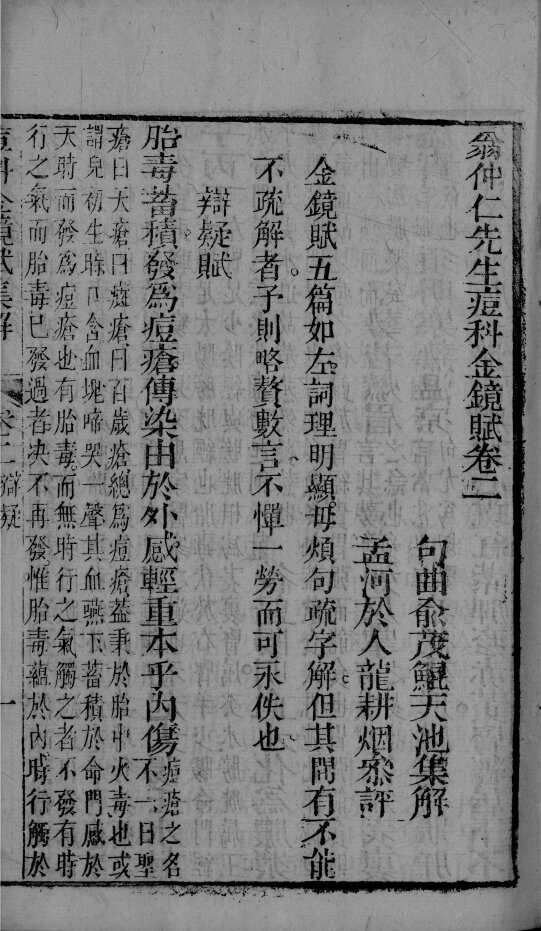 翁仲仁先生痘科金鏡賦卷二
句曲俞茂鯤天池集解
孟河於人龍耕烟叅評
金鏡賦五篇如左詞理明顯毋煩句疏字解但其間有不能
不疏解者子則略贅數言不憚一勞而可永佚也
辯疑賦
胎毒蓄積發爲痘瘡傳染由於外感輕重本乎內傷痘瘡之名
不一曰聖
瘡曰天瘡曰癍瘡曰百歲瘡總爲痘瘡葢秉於胎中火毒也或
謂兒初生時口含血塊啼哭一聲其血嚥下蓄積於命門感於
天時而發爲痘瘡也有胎毒而無時行之氣觸之者不發有時
行之氣而胎毒已發過者决不再發惟胎毒蘊於內時行觸於
痘科金鏡賦集解
卷二辯疑
一